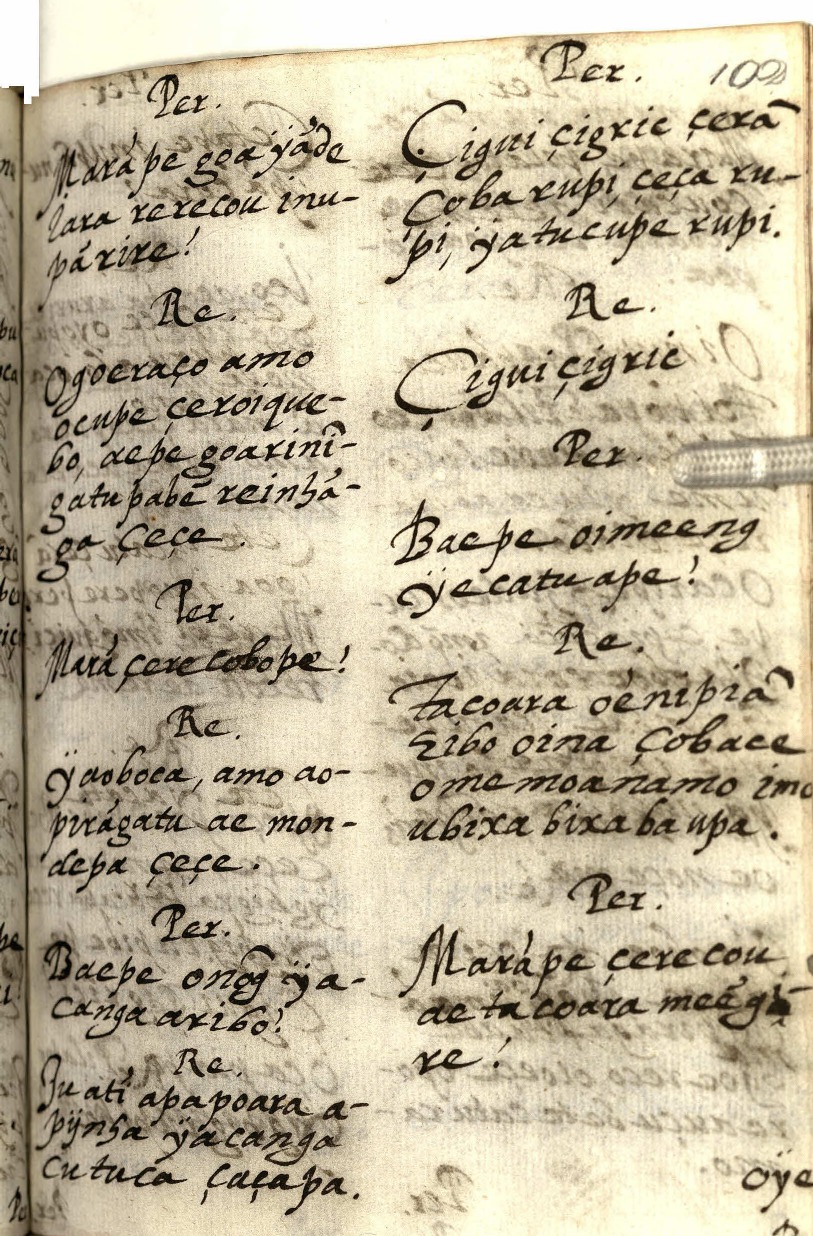 Per.
Marápe goaʼyáde
Iara rerecou inu-
párire!
Re.
Ogoeraço amo
ocupe çeroique-
bo, aepe goarinī-
gatu pabē reinhá-
ga çeçe.
Per.
Marā çerecobope!
Re.
ÿaoboca, amo ao-
pirāgatu ae mon-
depa çeçe.
Per.
Baepe onōg ÿa-
canga aribo!
Re.
Iu ati apapoara a-
pÿnha ÿacanga
cutuca çaçapa.
102
Per.
Çigui çigric çerā
Çoba rupi, çeça ru-
pi, ÿatucupe rupi.
Re.
Çigui çigric
Per.
Baepe oimeeng
ÿecatuape!
Re.
Tacoara oénipiā
Eibo oina çobace
omemoanamo imo
ubixa bixabaupa.
Per.
Marápe çerecou
ae tacoara meēgi
re!
oÿe